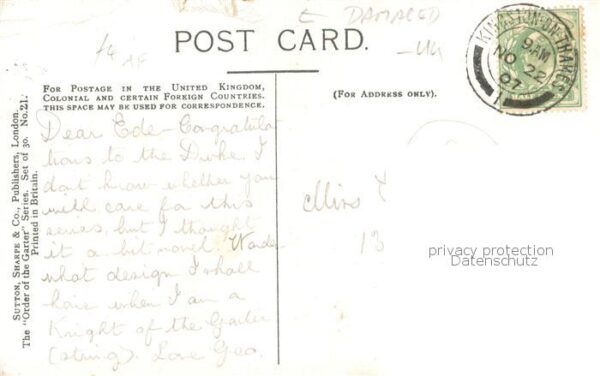 ← DAMAGED
POST CARD.
-UK
KINGSTON-ON-THAMES
9 AM
NO 22
07
1
FOR POSTAGE IN THE UNITED KINGDOM,
COLONIAL AND CERTAIN FOREIGN COUNTRIES.
THIS SPACE MAY BE USED FOR CORRESPONDENCE.
(FOR ADDRESS ONLY).
Dear Ede - Congratula
tions to the Duke. I
don't know whether you
will care for this
series, but I thought
it a bit novel. Wonder
what design I shall
have when I am a
Knight of the Garter
(string). Love Geo.
Miss
13
privacy protection
Datenschutz
SUTTON, SHARPE & CO., Publishers, London.
The "Order of the Garter" Series. Set of 30. No. 21.
Printed in Britain.